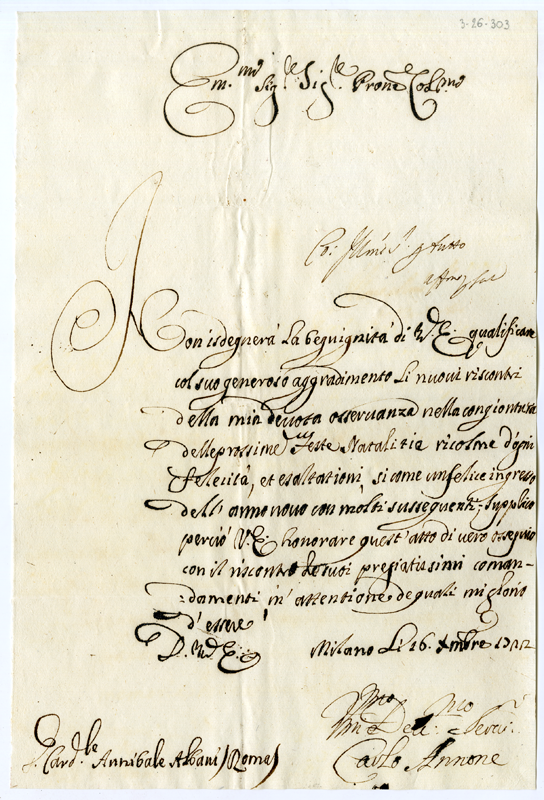 3-26-303
Em.mo Sig.re Sig.re Prone Col.mo
Non isdegnerà La benignita di V.E. qualificare
col suo generoso aggradimento Li nuovi riscontri
della mia devota osservanza nella congiontura
delle prossime feste Natalitie ricolme d'ogni
felecità, et esaltationi, si come un felice ingresso
dell'anno novo con molti susseguenti; supplico
perciò V.E. honorare quest'atto di vero ossequio
con il riscontro de suoi pregiatissimi coman-
:damenti in attentione de quali mi glorio
d'essere
D. V.E.
Milano Li 16. Xmbre
Carlo Annone
Card.le Annibale Albani / Roma /